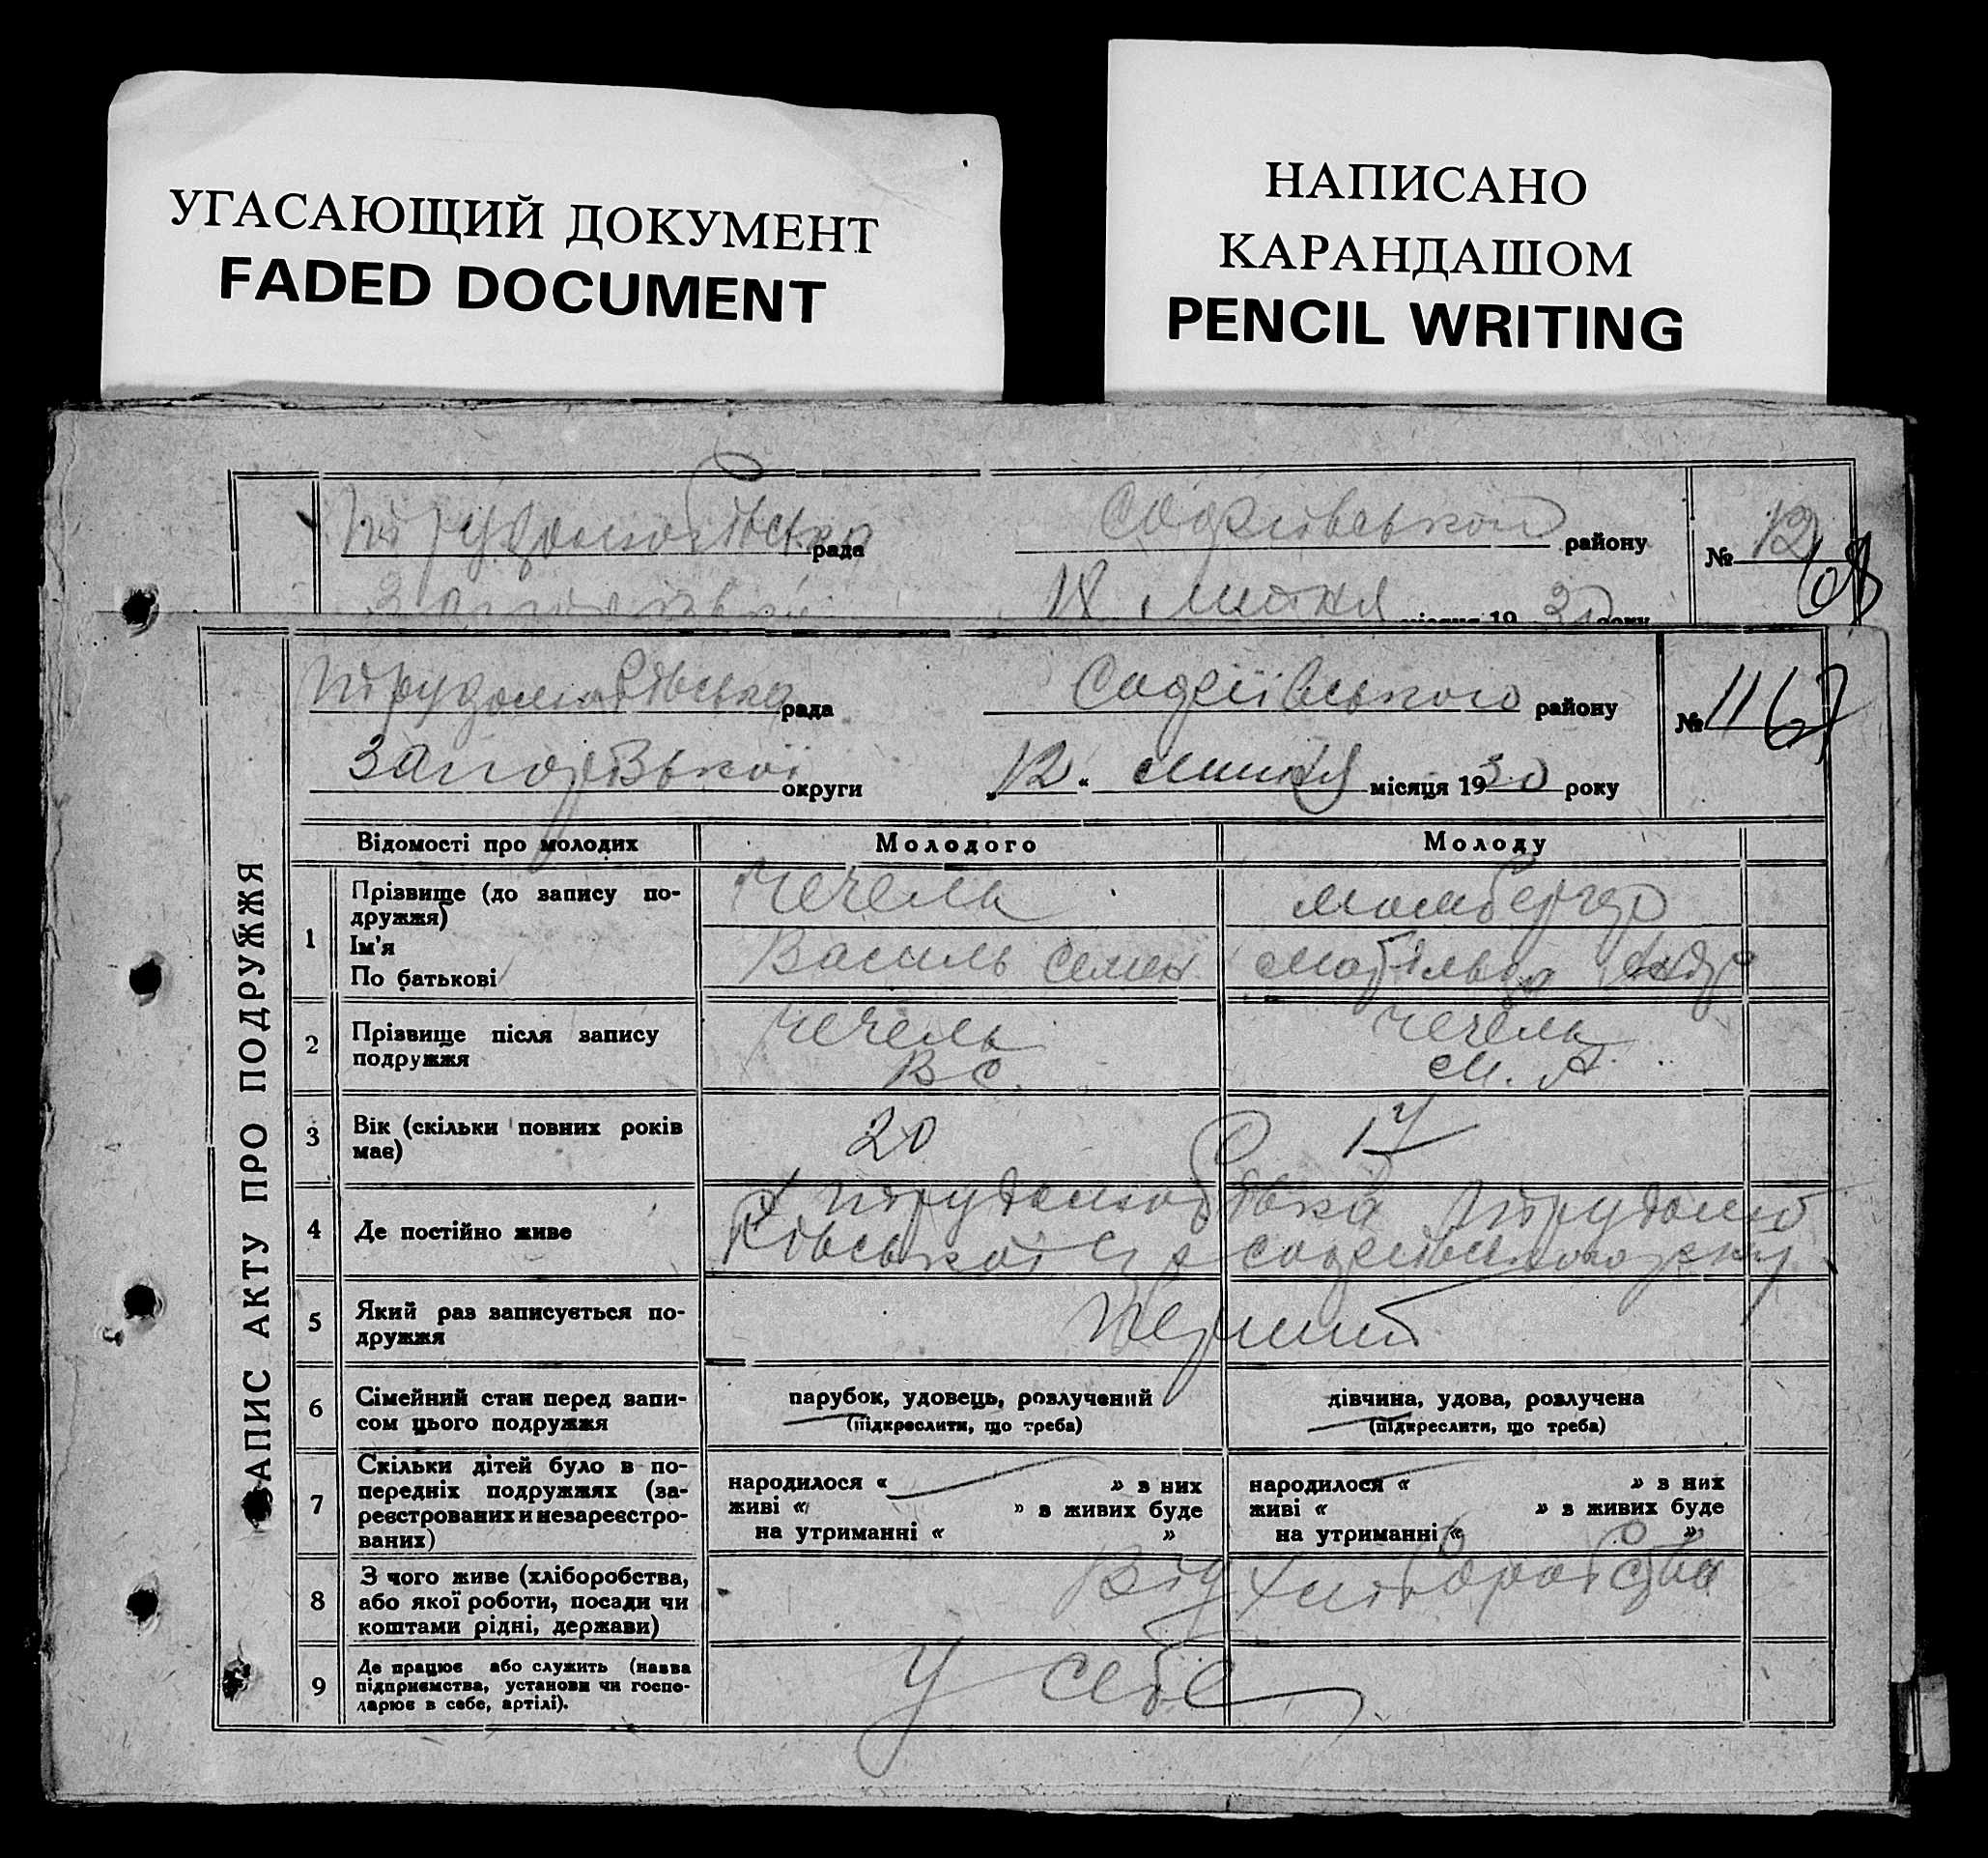 УГАСАЮЩИЙ ДОКУМЕНТ
FADED DOCUMENT
НАПИСАНО
КАРАНДАШОМ
PENCIL WRITING
Трудолюбівська рада Софіївської району № 12
18 липня місяця 19 30 року
68
ЗАПИС АКТУ ПРО ПОДРУЖЖЯ
Трудолюбівська рада Софіївського району № 11 67
Запорізької округи „12“ липня місяця 1930 року
Відомості про молодих Молодого Молоду
1 Прізвище (до запису подружжя) Чечель Момбергер
Ім'я
По батькові Василь Семен Мотільда Андр
2 Прізвище після запису подружжя Чечель В С. Чечель М. А.
3 Вік (скільки повних років має) 20 17
4 Де постійно живе х Трудолюбівка Трудолюбівської с/р Софіївського р-ну
5 Який раз записується подружжя Перший
6 Сімейний стан перед записом цього подружжя парубок, удовець, розлучений дівчина, удова, розлучена
(підкреслити, що треба) (підкреслити, що треба)
7 Скільки дітей було в попередніх подружжях (зареєстрованих и незареєстрованих)
народилося « » з них народилося « » з них
живі « » з живих буде живі « » з живих буде
на утриманні « » на утриманні « »
8 З чого живе (хліборобства, або якої роботи, посади чи коштами рідні, держави) Від хліборобства
9 Де працює або служить (назва підприємства, установи чи господарює в себе, артілі). У себе